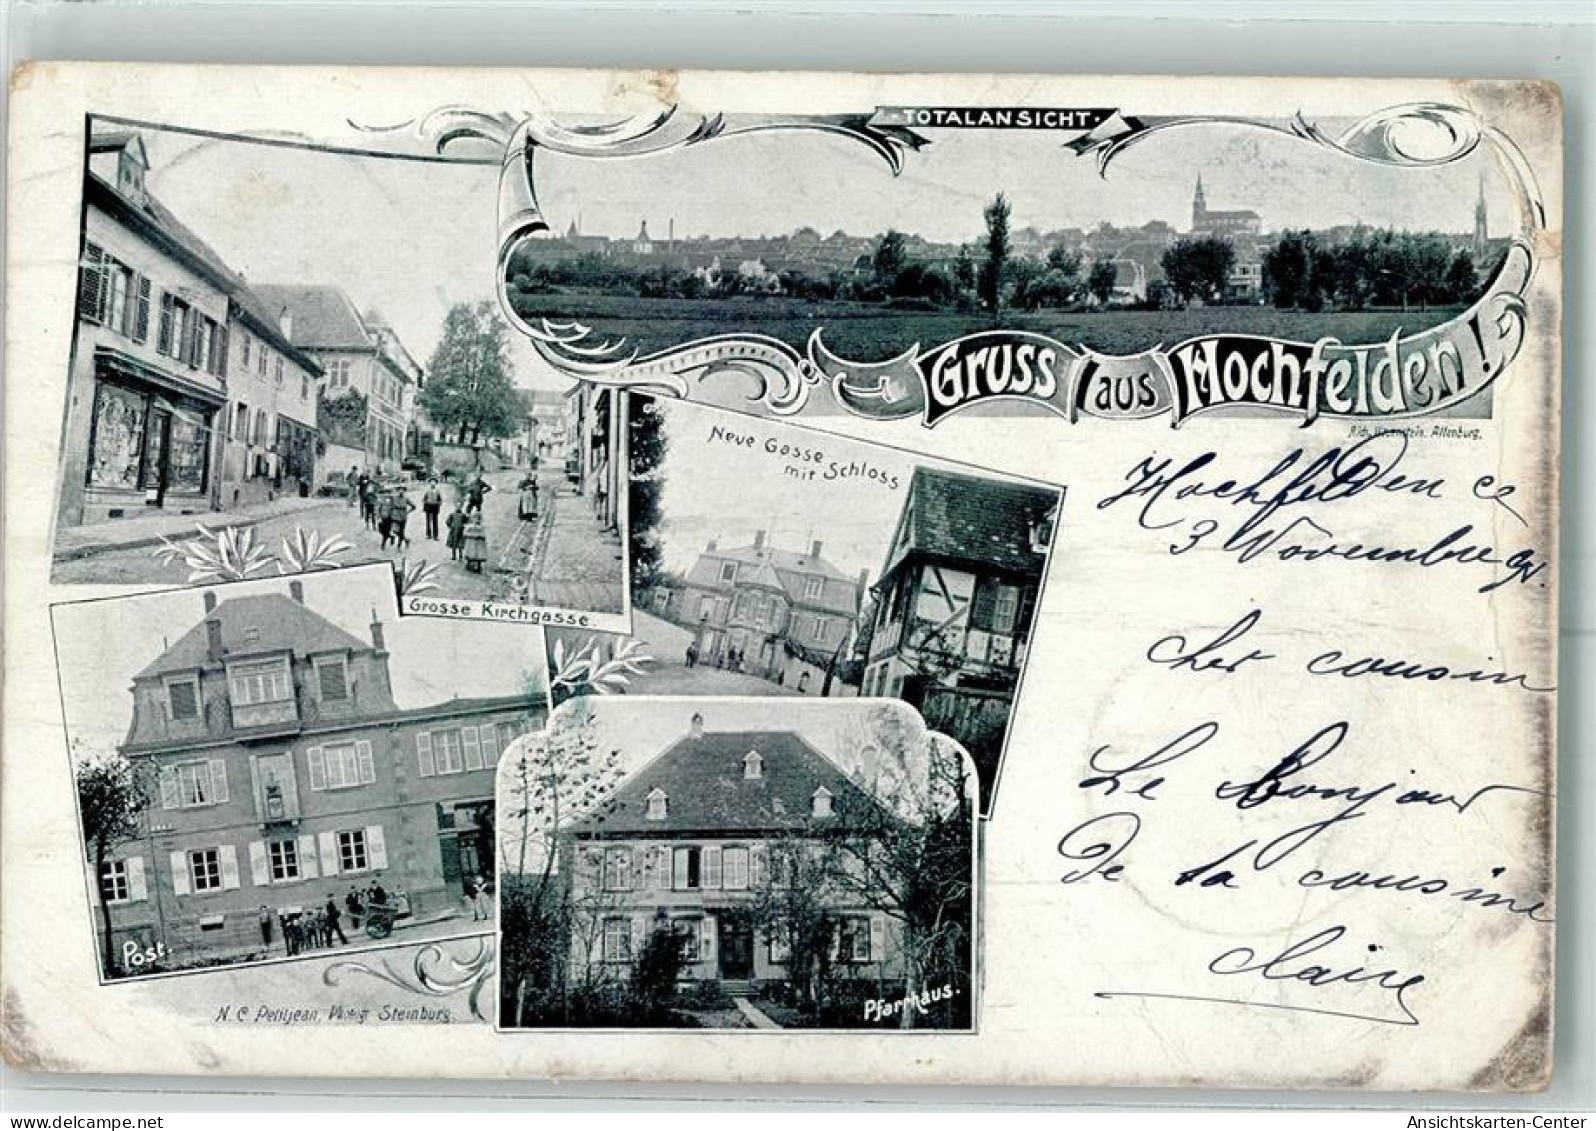 ·TOTALANSICHT·
Gruss aus Hochfelden!
Altenburg.
Grosse Kirchgasse.
Neue Gasse
mit Schloss
Post.
Pfarrhaus.
N. C. Petitjean, Steinburg.
Hochfelden ce
3 Novembre
cher cousin
Le Bonjour
De la cousine
Claire
Ansichtskarten-Center
AnsichtsKarten-Center